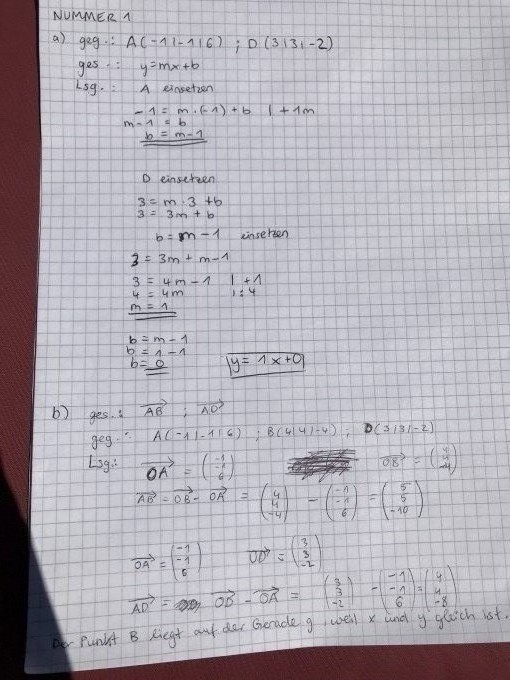 NUMMER 1
a) geg.: A(-1|-1|6) ; D(3|3|-2)
ges.: y=mx+b
Lsg.: A einsetzen
-1 = m·(-1) + b | +1m
m-1 = b
b = m-1
D einsetzen
3 = m·3 +b
3 = 3m + b
b = m-1 einsetzen
3 = 3m + m-1
3 = 4m -1 | +1
4 = 4m | :4
m = 1
b = m-1
b = 1-1
b = 0 y = 1x+0
b) ges.: AB ; AD
geg.: A(-1|-1|6) ; B(4|4|-4) ; D(3|3|-2)
Lsg.: OA = (-1 -1 6) OB = (4 4 -4)
AB = OB - OA = (4 4 -4) - (-1 -1 6) = (5 5 -10)
OA = (-1 -1 6) OD = (3 3 -2)
AD = OD - OA = (3 3 -2) - (-1 -1 6) = (4 4 -8)
Der Punkt B liegt auf der Gerade g, weil x und y gleich ist.